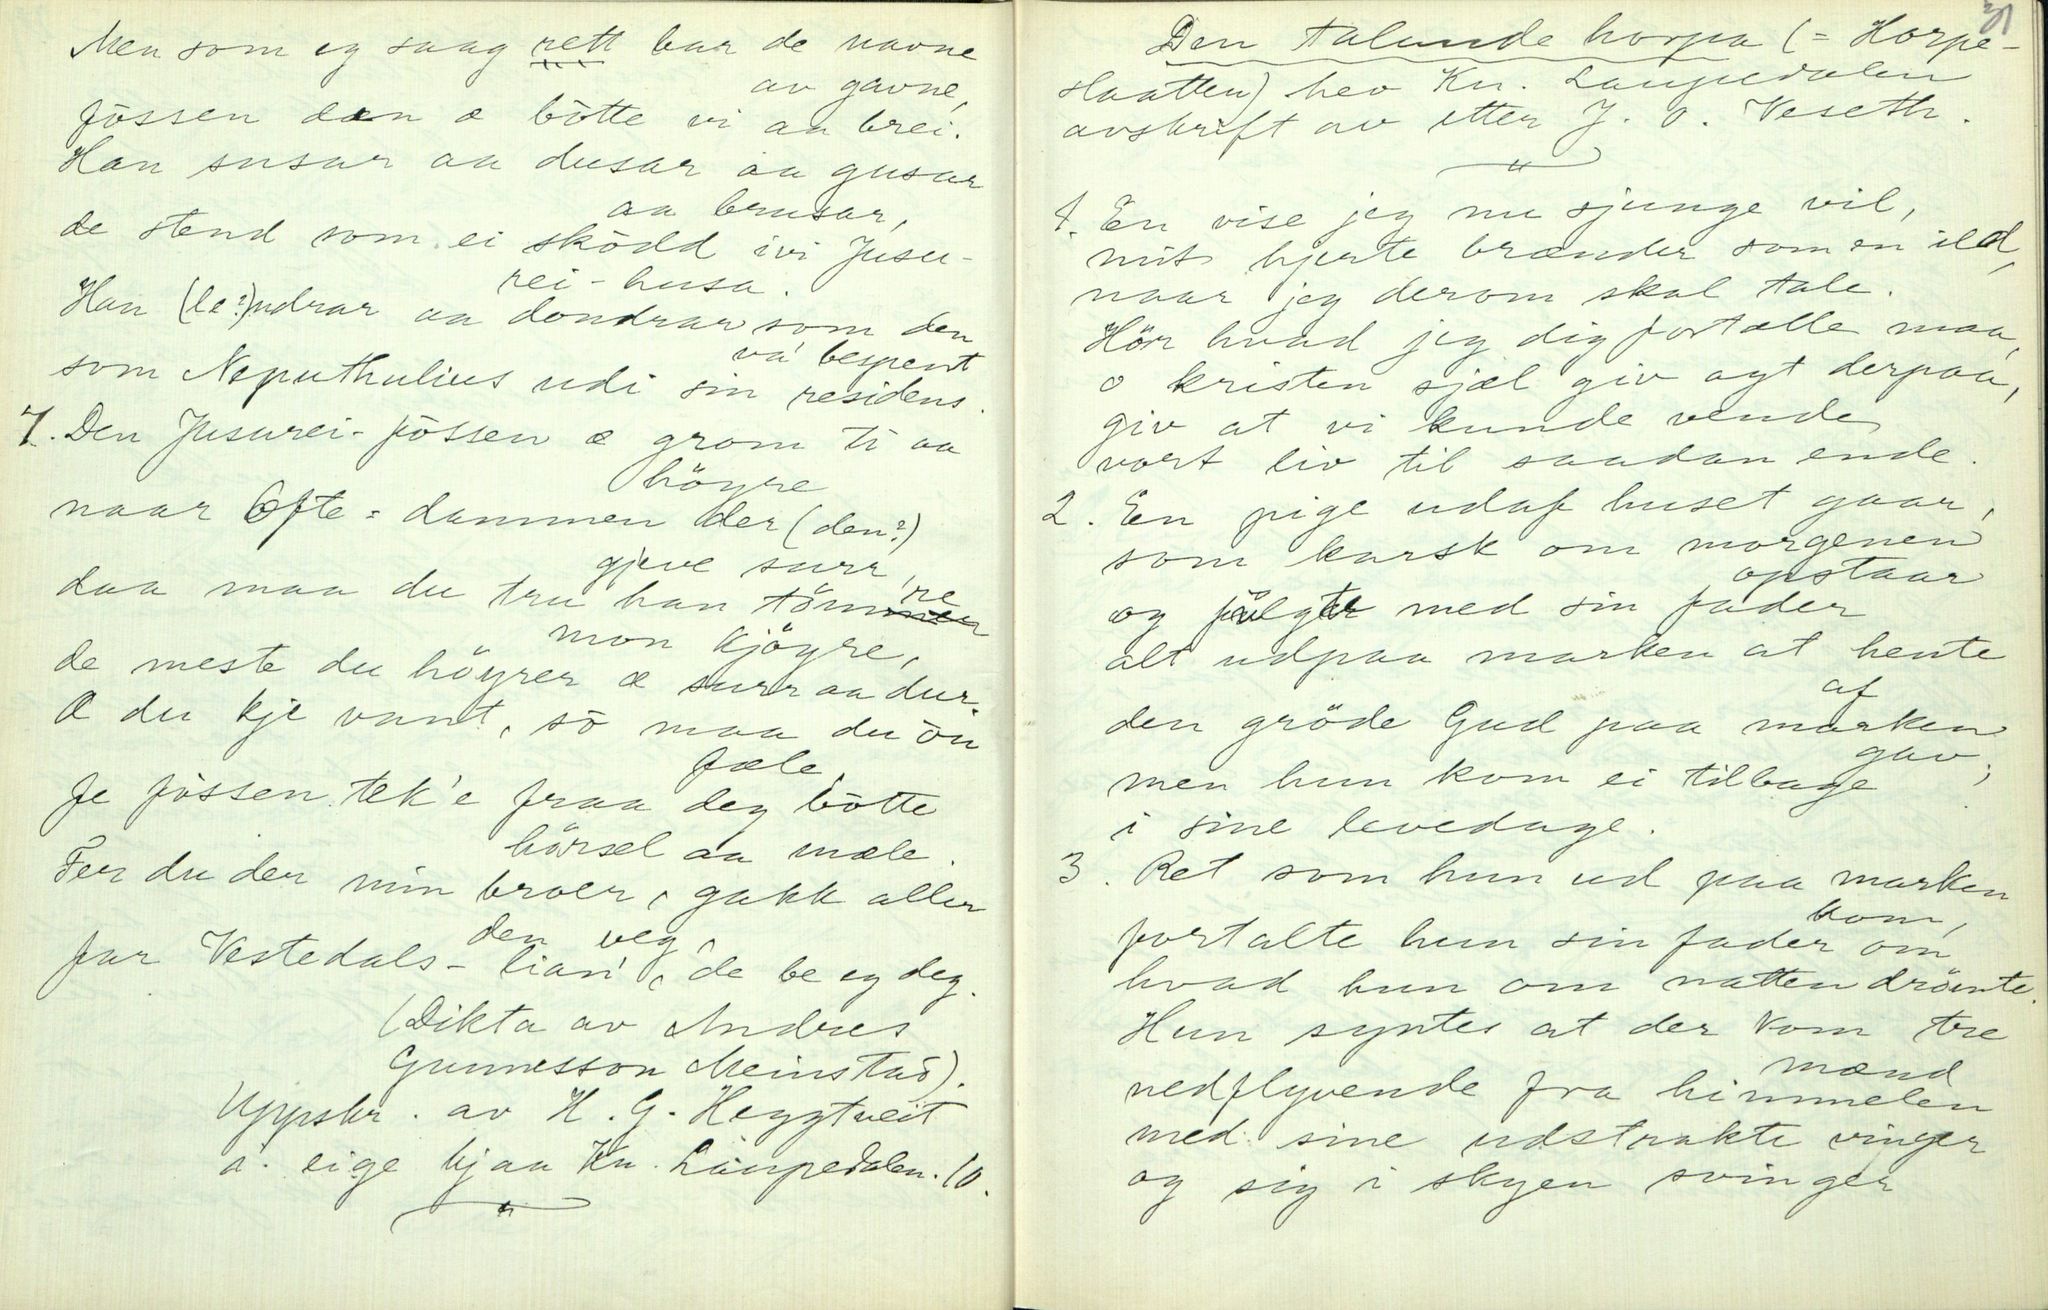 Men som eg saag rett bar de navne
av gavne,
fòssen den æ bòtte vi aa brei.
Han susar aa dusar aa gusar
aa brusar,
de stend som ei skòdd ivi Jusu-
rei-husa.
Han (le?)ndrar aa dondrar som den
va' bespent
som Neputhulius udi sin residens.
7. Den Jusurei-fòssen æ grom ti aa
höyre
naar Ofte-dammen der (den?)
gjeve surr,
daa maa du tru han tömre
mon kjöyre,
de meste du höyrer æ surr aa dur.
Æ du kje vant, sò maa du òn
fæle,
fe fòssen tek'e fraa deg bòtte
hörsel aa mæle.
Fer du der min broer, gakk aller
den veg,
far Vestedals-lian', de be eg deg.
(Dikta av Andres
Gunnesson Meinstad).
Uppskr. av H. G. Heggtveit
a. eige hjaa Kn. Laupedalen. 10.
"
31
Den talende horpa (= Horpe-
slaatten) hev Kn. Laupedalen
avskrift av etter J. O. Veseth.
"
1. En vise jeg nu sjunge vil,
mit hjerte brænder som en ild,
naar jeg derom skal tale.
Hör hvad jeg dig fortælle maa,
o kristen sjæl giv agt derpaa,
giv at vi kunde vende
vort liv til saadan ende.
2. En pige udaf huset gaar,
som karsk om morgenen
opstaar
og fölgte med sin fader
alt udpaa marken at hente
af
den gröde Gud paa marken
gav;
men hun kom ei tilbage
i sine levedage.
3. Ret som hun ud paa marken
kom,
fortalte hun sin fader om
hvad hun om natten drömte.
Hun syntes at der kom tre
mænd
nedflyvende fra himmelen
med sine udstrakte vinger
og sig i skyen svinger